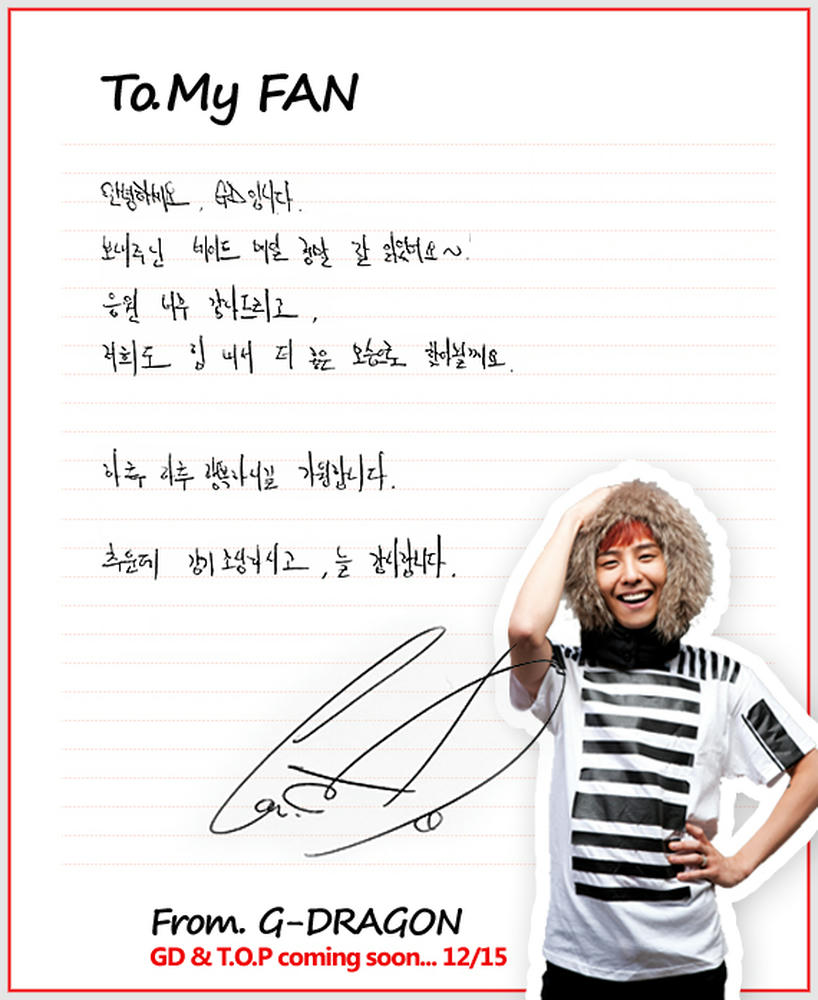 To. My FAN
안녕하세요, GD입니다.
보내주신 네이트 메일 정말 잘 읽었어요~!
응원 너무 감사드리고,
저희도 힘 내서 더 좋은 모습으로 찾아뵐께요.
하루 하루 행복하시길 기원합니다.
추운데 감기 조심하시고, 늘 감사합니다.
From. G-DRAGON
GD & T.O.P coming soon... 12/15